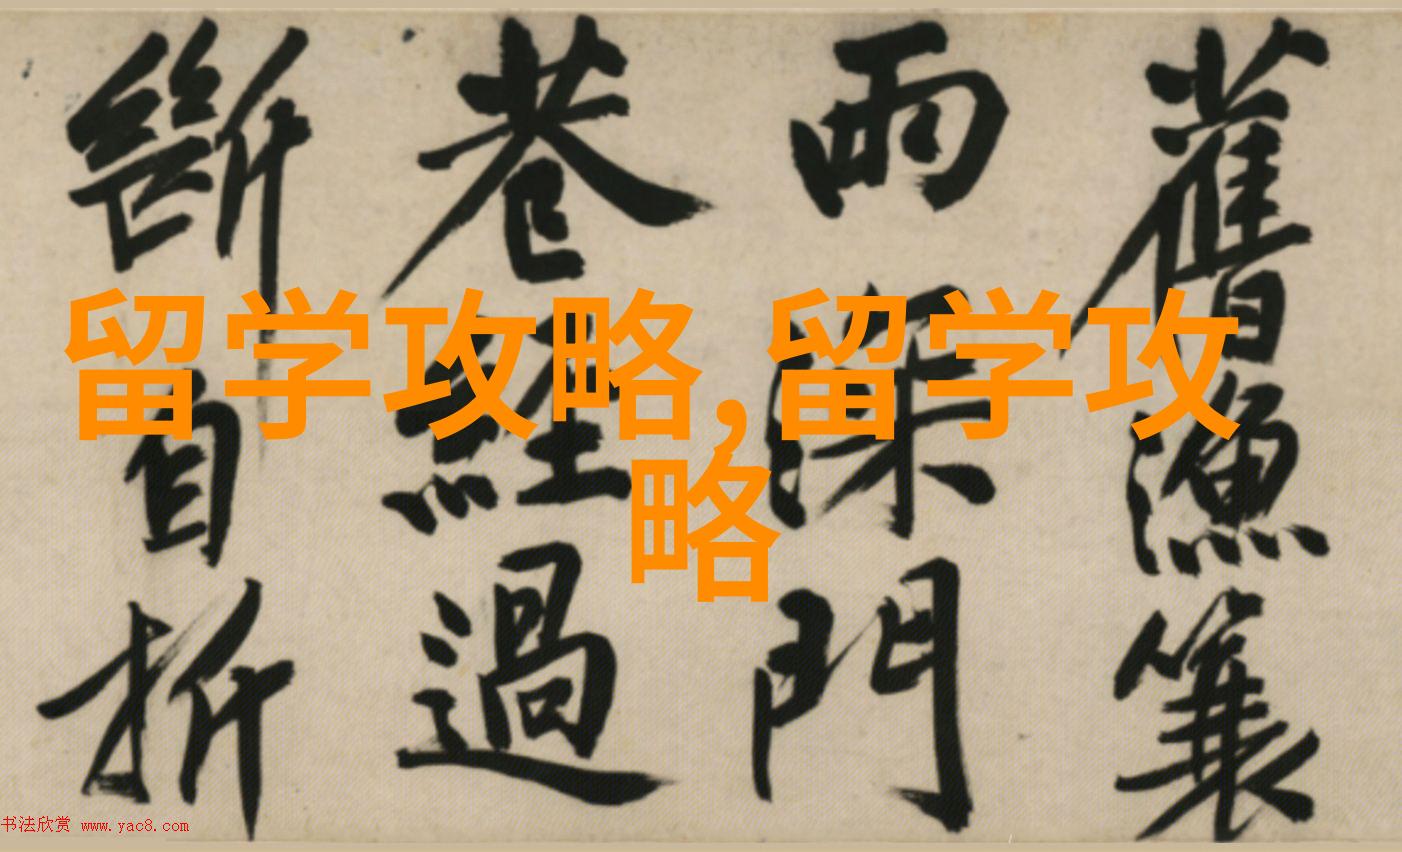 舊漁簑
雨深門
巷經過
斷自折
留学攻略,留学攻
略
书法欣赏 www.yac8.com